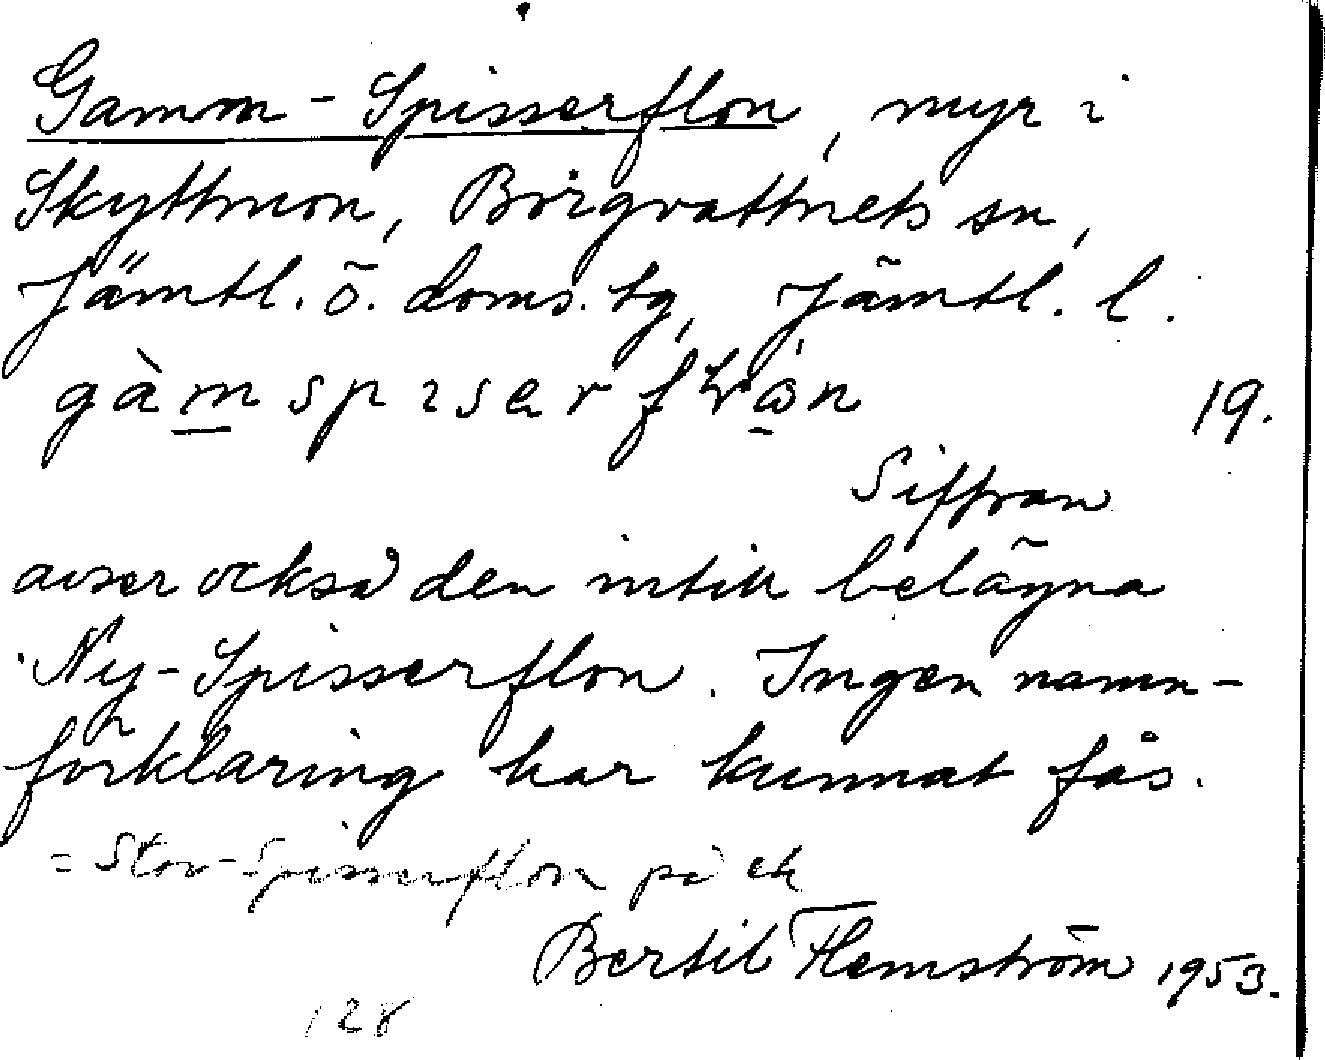 Gamm-Spisserflon, myr i
Skyttmon, Borgvattnets sn,
Jämtl. ö. doms. tg, Jämtl. l.
gàmspiser 19.
Siffran
avser också den intill belägna
Ny-Spisserflon. Ingen namn-
förklaring har kunnat fås.
= Stor-Spisserflon på ek
Bertil Flemström 1953.
128